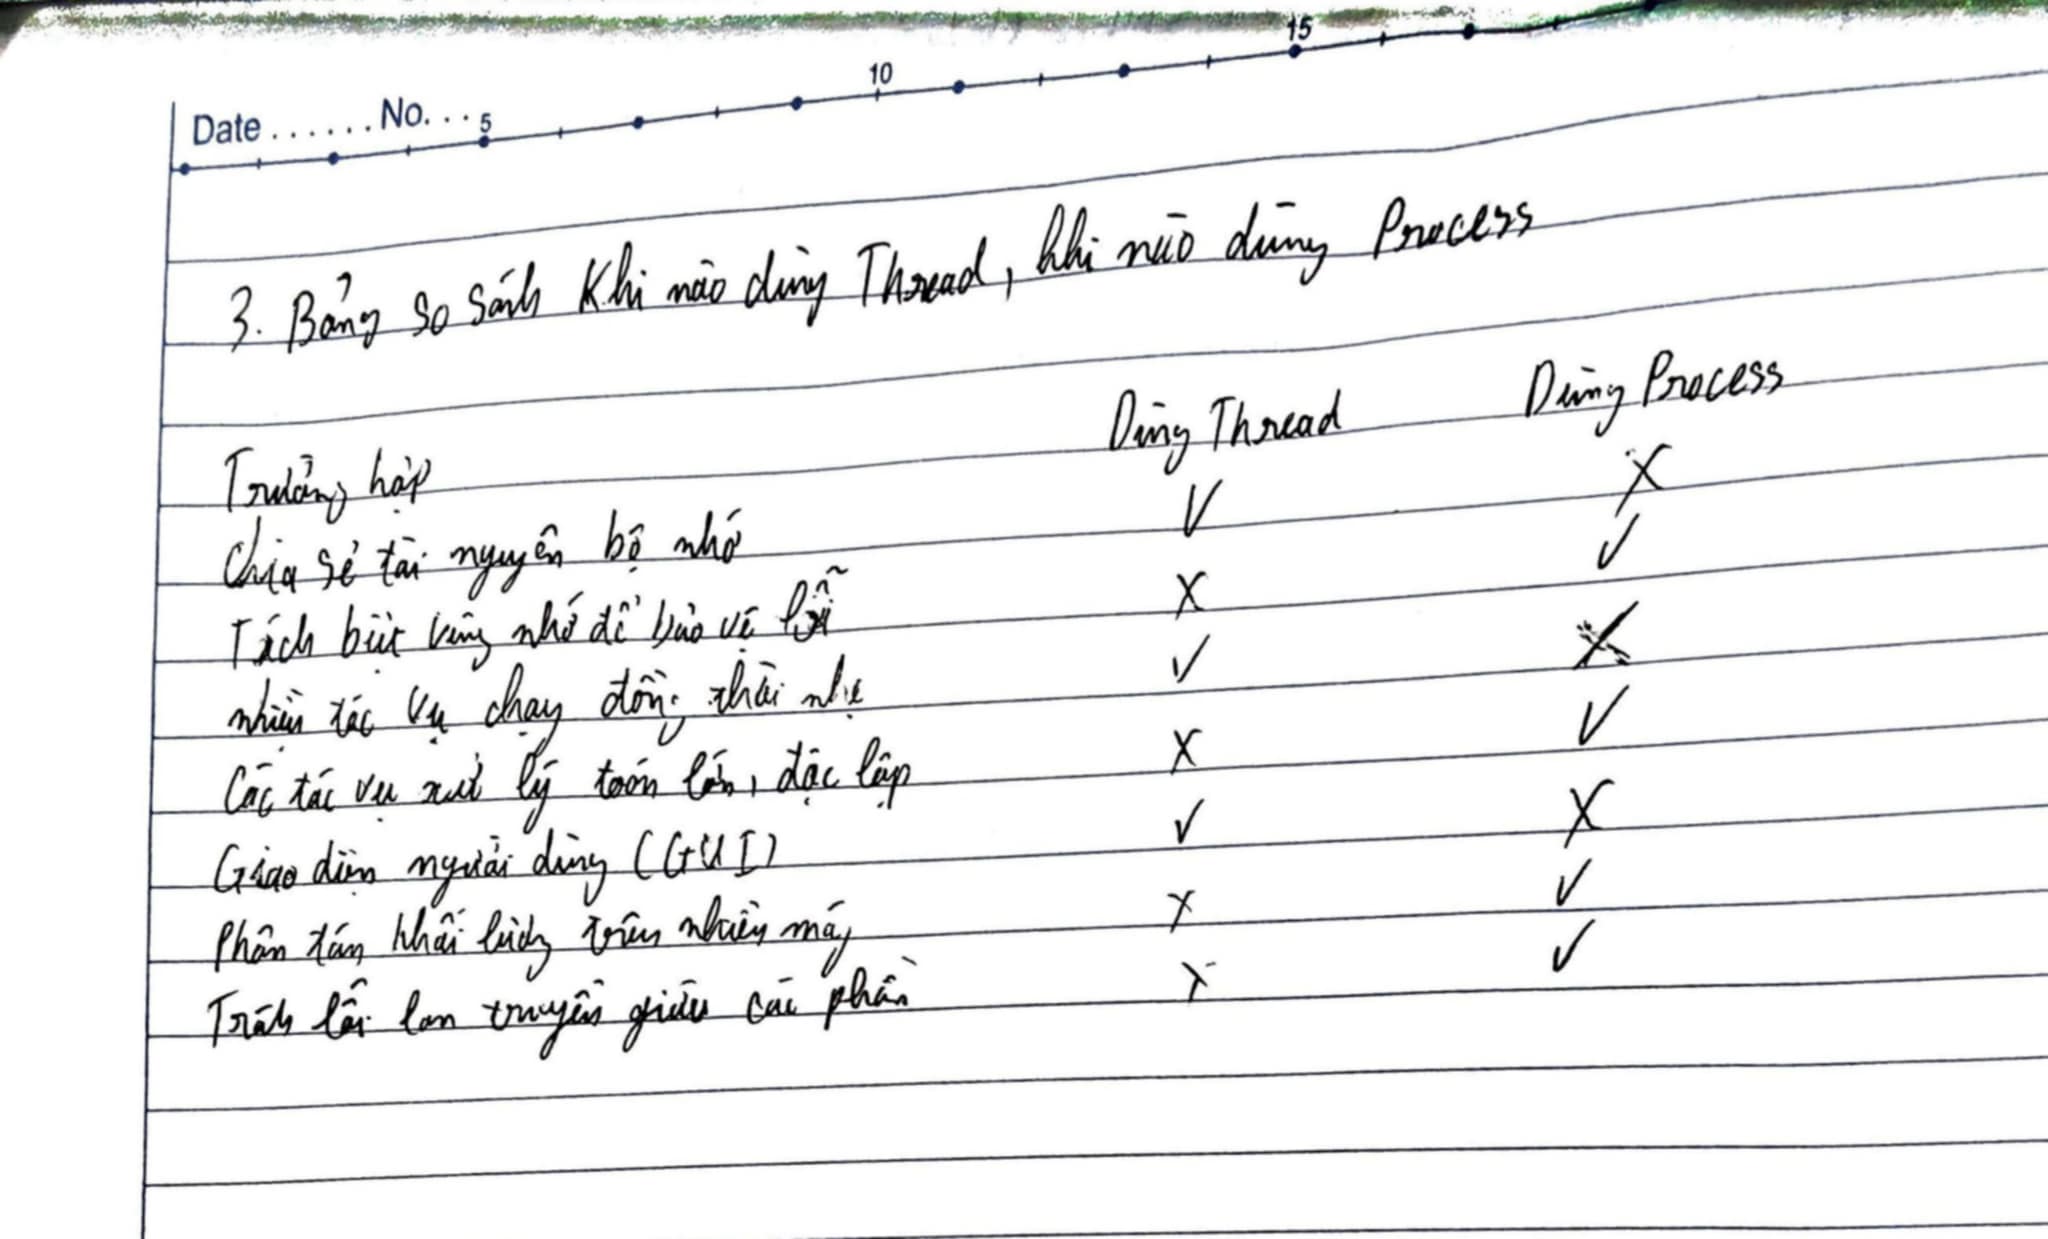 Date ...... No. ...
5 10 15
3. Bảng so sánh Khi nào dùng Thread, khi nào dùng Process
Trường hợp Dùng Thread Dùng Process
Chia sẻ tài nguyên bộ nhớ ✓ X
Tách biệt vùng nhớ để bảo vệ lỗi X ✓
nhiều tác vụ chạy đồng thời nhẹ ✓ X
Các tác vụ xử lý toán lớn, độc lập X ✓
Giao diện người dùng (GUI) ✓ X
Phân tán khối lượng trên nhiều máy X ✓
Tránh lỗi lan truyền giữa các phần X ✓